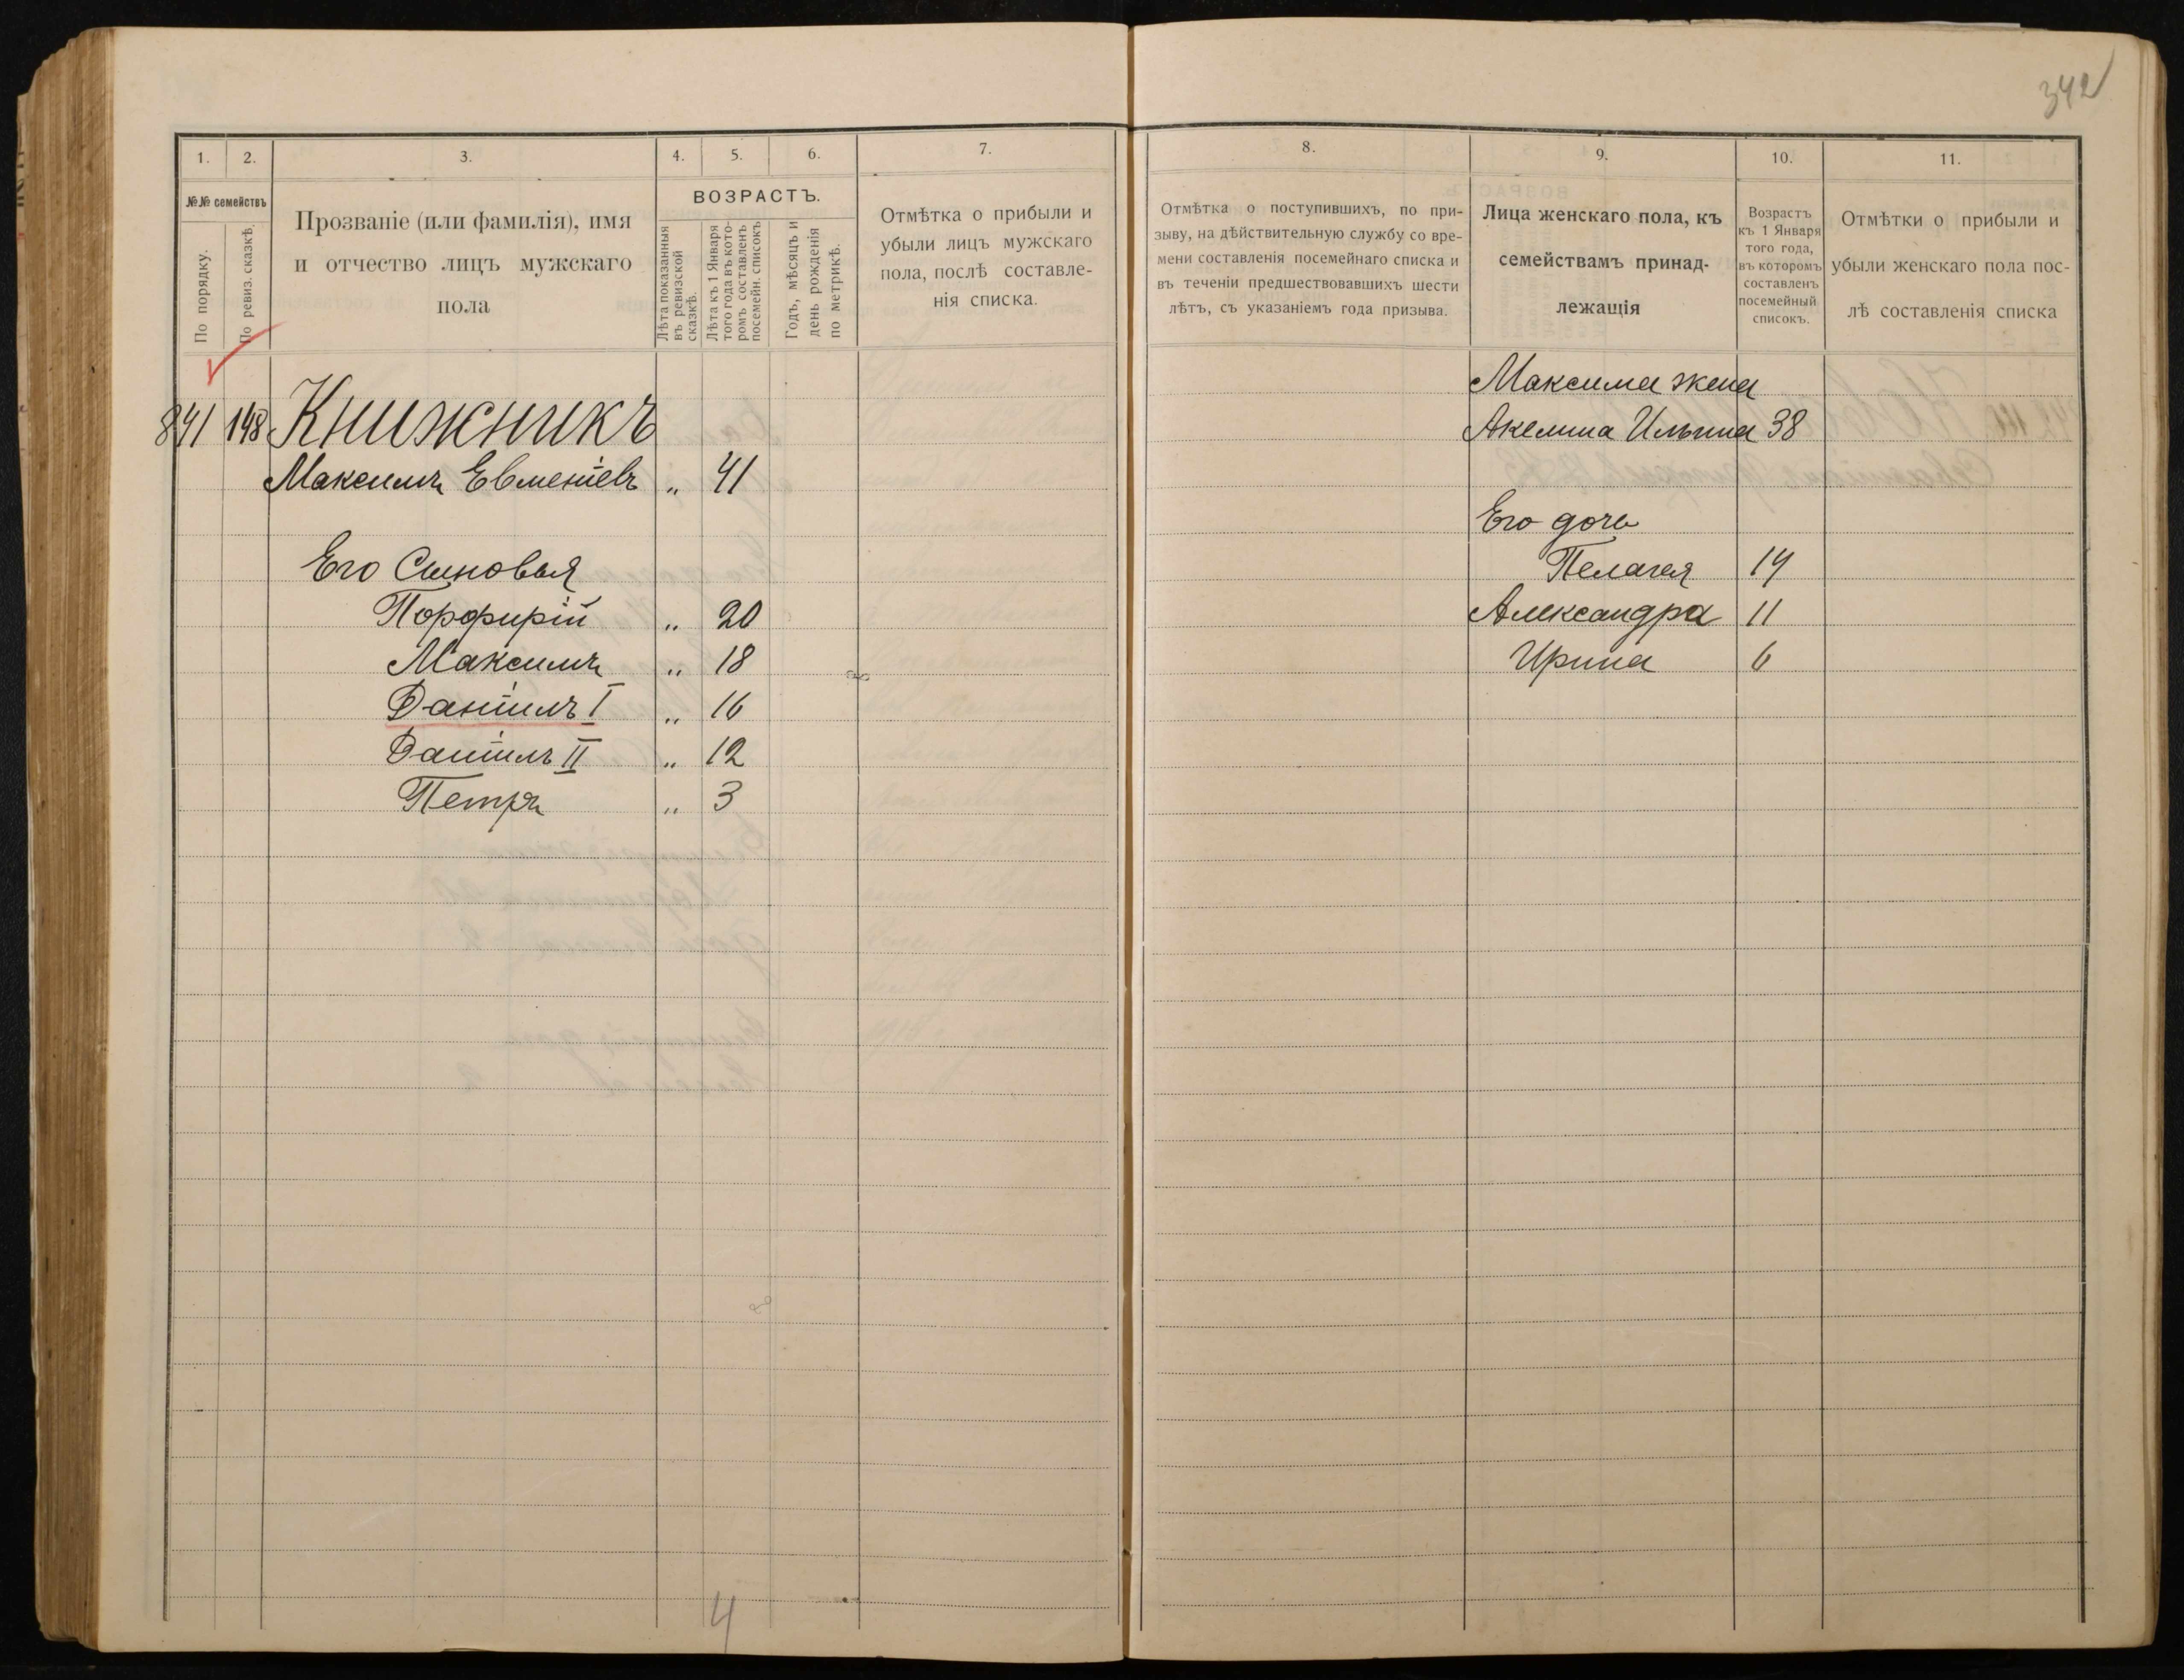 342
1.
2.
3.
4.
5.
6.
7.
№№ семействъ
По порядку.
По ревиз. сказкѣ.
Прозваніе (или фамилія), имя
и отчество лицъ мужскаго
пола
ВОЗРАСТЪ.
Лѣта показанныя
въ ревизской
сказкѣ.
Лѣта къ 1 Января
того года въ кото-
ромъ составленъ
посемейн. списокъ
Годъ, мѣсяцъ и
день рожденія
по метрикѣ.
Отмѣтка о прибыли и
убыли лицъ мужскаго
пола, послѣ составле-
нія списка.
841 148 Книжникъ
Максимъ Евменіевъ " 41
Его Сыновья
Порфирій " 20
Максимъ " 18
Даніилъ I " 16
Даніилъ II " 12
Петръ " 3
4
8.
9.
10.
11.
Отмѣтка о поступившихъ, по при-
зыву, на дѣйствительную службу со вре-
мени составленія посемейнаго списка и
въ теченіи предшествовавшихъ шести
лѣтъ, съ указаніемъ года призыва.
Лица женскаго пола, къ
семействамъ принад-
лежащія
Возрастъ
къ 1 Января
того года,
въ которомъ
составленъ
посемейный
списокъ.
Отмѣтки о прибыли и
убыли женскаго пола пос-
лѣ составленія списка
Максима жена
Акелина Ильина 38
Его дочь
Пелагея 14
Александра 11
Ирина 6